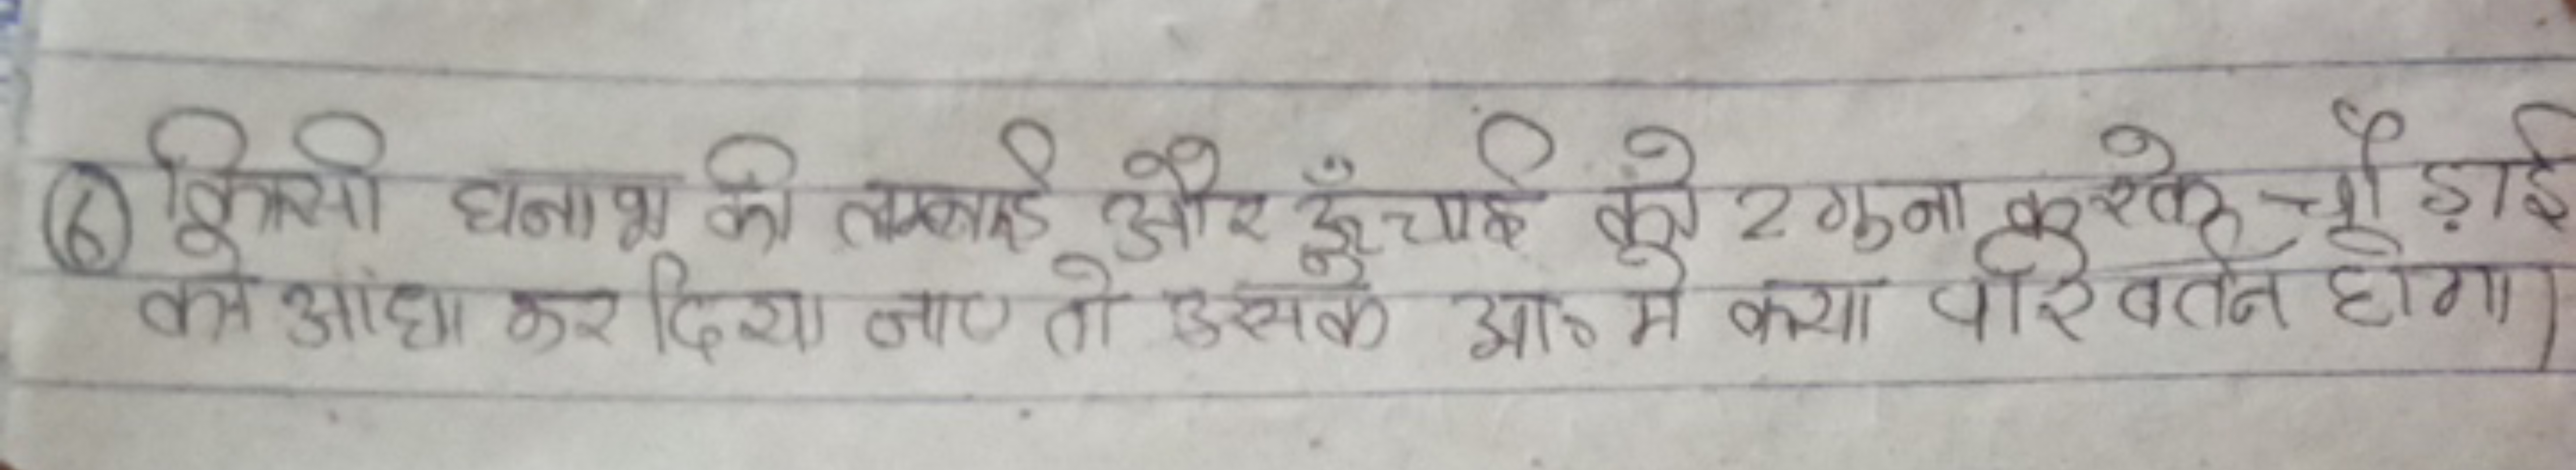 ⑥ किसी घनाभ की लम्बाई और ऊँचाई को 2 गुना करके चौड़ाई
को आधा कर दिया जाए तो उसके आ० मे क्या परिवर्तन होगा।